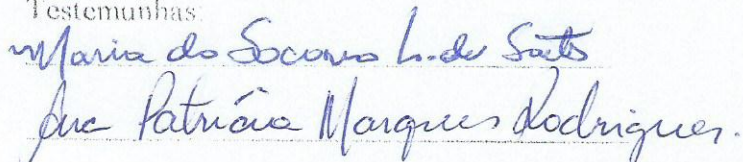 Testemunhas:
Maria do Socorro L. de Santos
Ana Patrícia Marques Rodrigues.